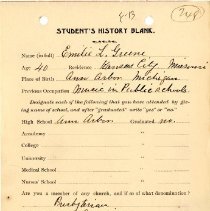 8-13
STUDENT'S HISTORY BLANK.
Name (in full) Emilie L. Greene
Age 40 Residence Kansas City, Missouri
Place of Birth Ann Arbor Michigan
Previous Occupation Music in Public Schools.
Designate each of the following that you have attended by giving name of school, and after "graduated" write "yes" or "no."
High School Ann Arbor Graduated no.
Academy
College
University
Medical School
Nurses' School
Are you a member of any church, and if so what denomination?
Presbyterian